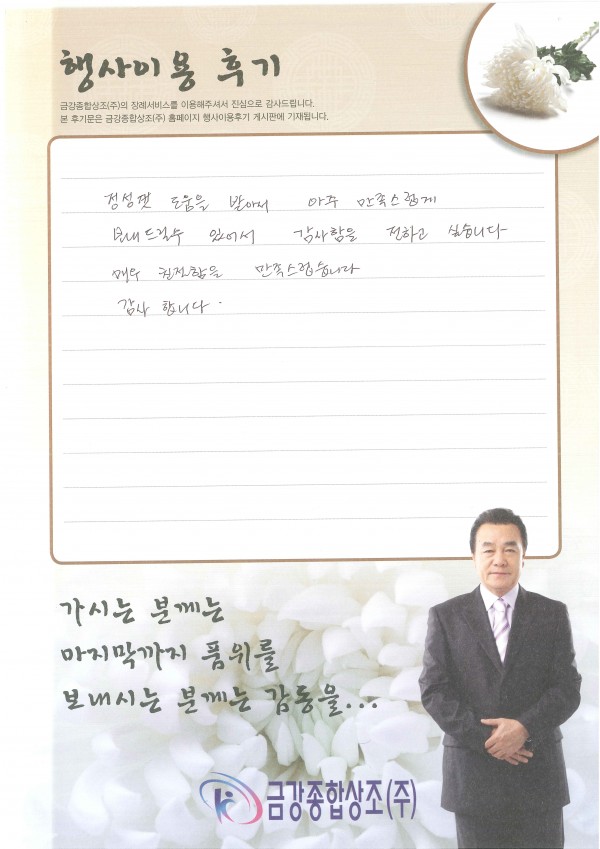 행사이용 후기
금강종합상조(주)의 장례서비스를 이용해주셔서 진심으로 감사드립니다.
본 후기문은 금강종합상조(주) 홈페이지 행사이용후기 게시판에 기재됩니다.
정성껏 도움을 받아서 아주 만족스럽게
보내드릴수 있어서 감사함을 전하고 싶습니다
매우 만족스럽습니다
감사 합니다.
가시는 분께는
마지막까지 품위를
보내시는 분께는 감동을...
금강종합상조(주)